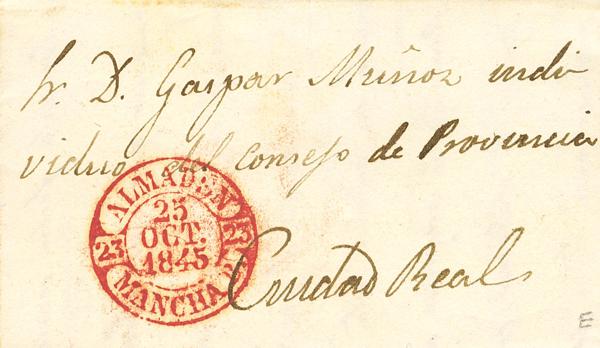 Sr. D. Gaspar Muñoz indi
viduo del Consejo de Provincia
Ciudad Real
ALMADEN
23 23
25
OCT.
1845
MANCHA
E